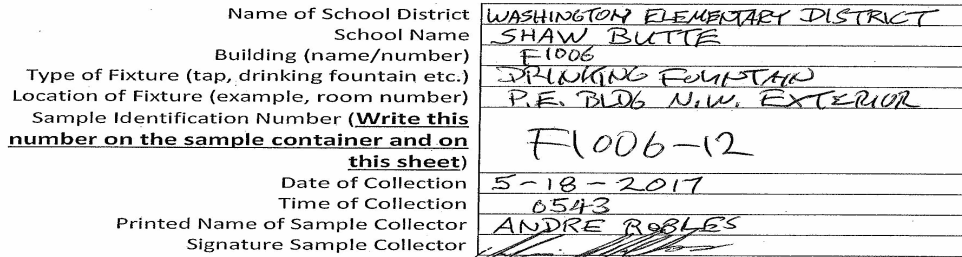 Name of School District WASHINGTON ELEMENTARY DISTRICT
School Name SHAW BUTTE
Building (name/number) F1006
Type of Fixture (tap, drinking fountain etc.) DRINKING FOUNTAIN
Location of Fixture (example, room number) P.E. BLDG N.W. EXTERIOR
Sample Identification Number (Write this
number on the sample container and on F1006-12
this sheet)
Date of Collection 5-18-2017
Time of Collection 0543
Printed Name of Sample Collector ANDRE ROBLES
Signature Sample Collector